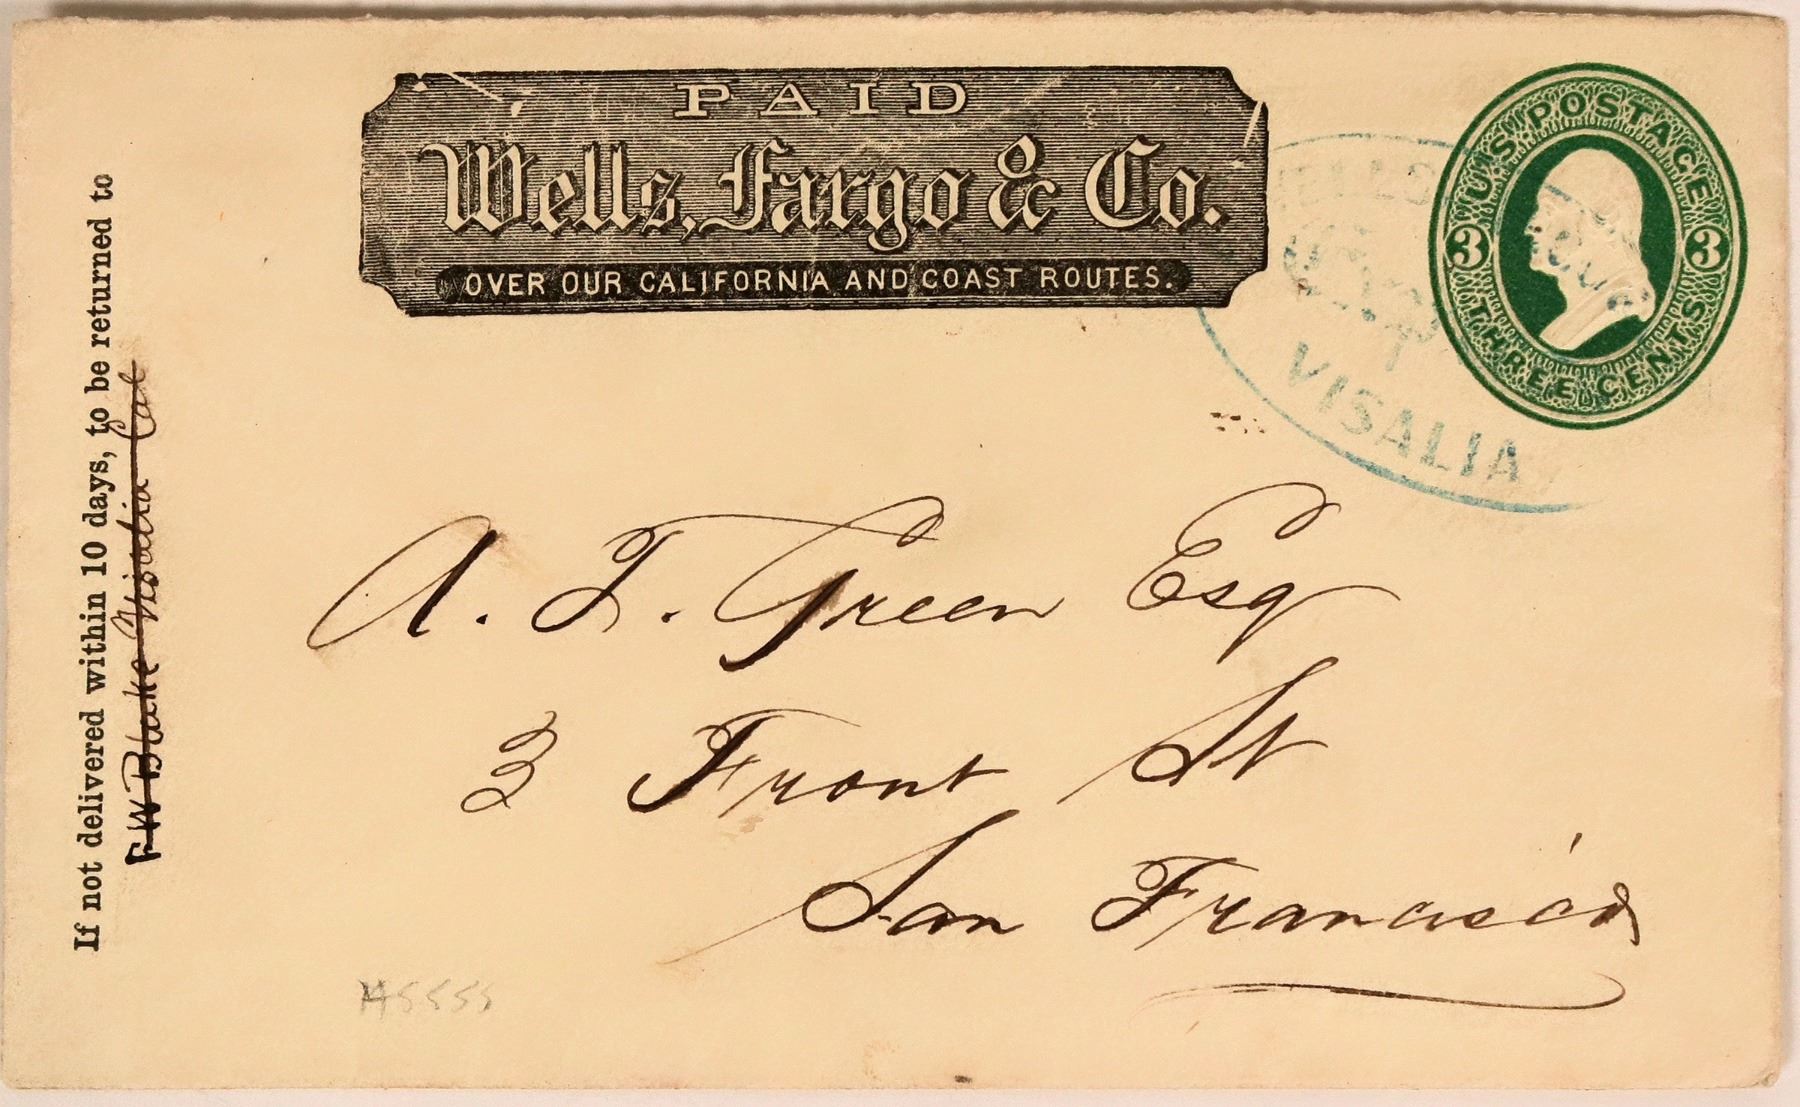 PAID
Wells, Fargo & Co.
OVER OUR CALIFORNIA AND COAST ROUTES.
U.S. POSTAGE
3 3
THREE CENTS
WELLS
VISALIA
If not delivered within 10 days, to be returned to
F W Blake Visalia Cal
A. T. Green Esq
3 Front St
San Francisco